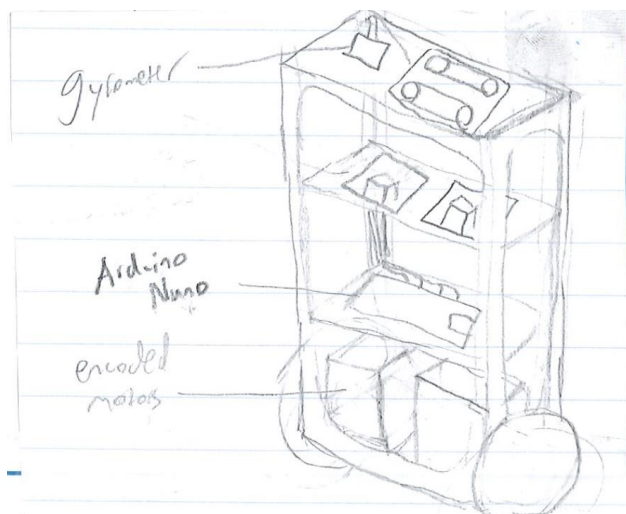 gyrometer
Arduino
Nano
encoded
motors